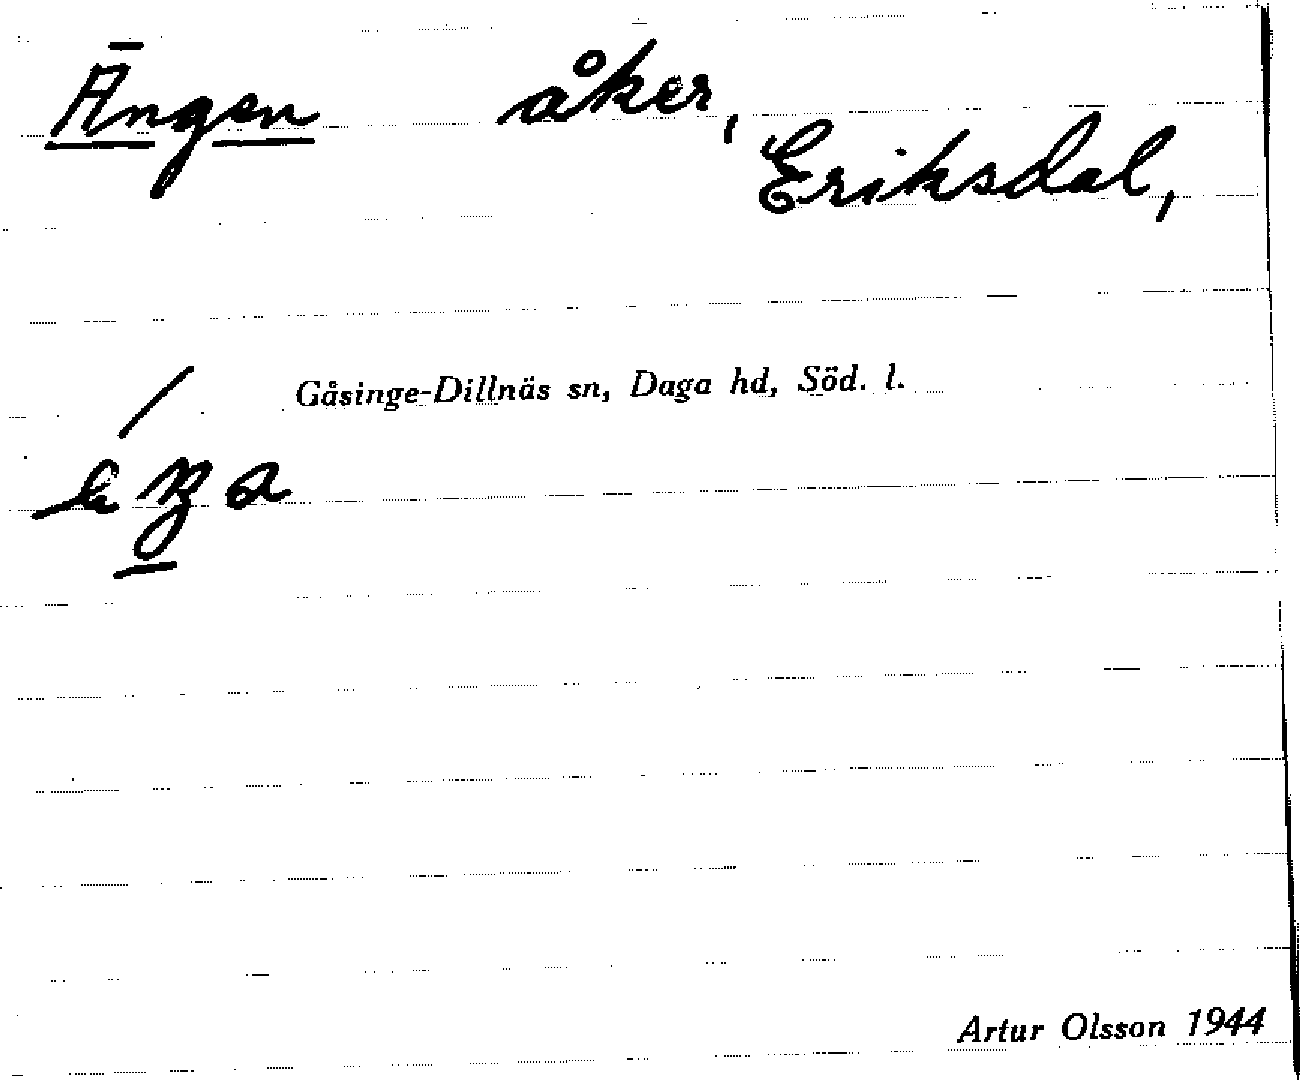 Ängen åker,
Eriksdal,
Gåsinge-Dillnäs sn, Daga hd, Söd. l.
Artur Olsson 1944